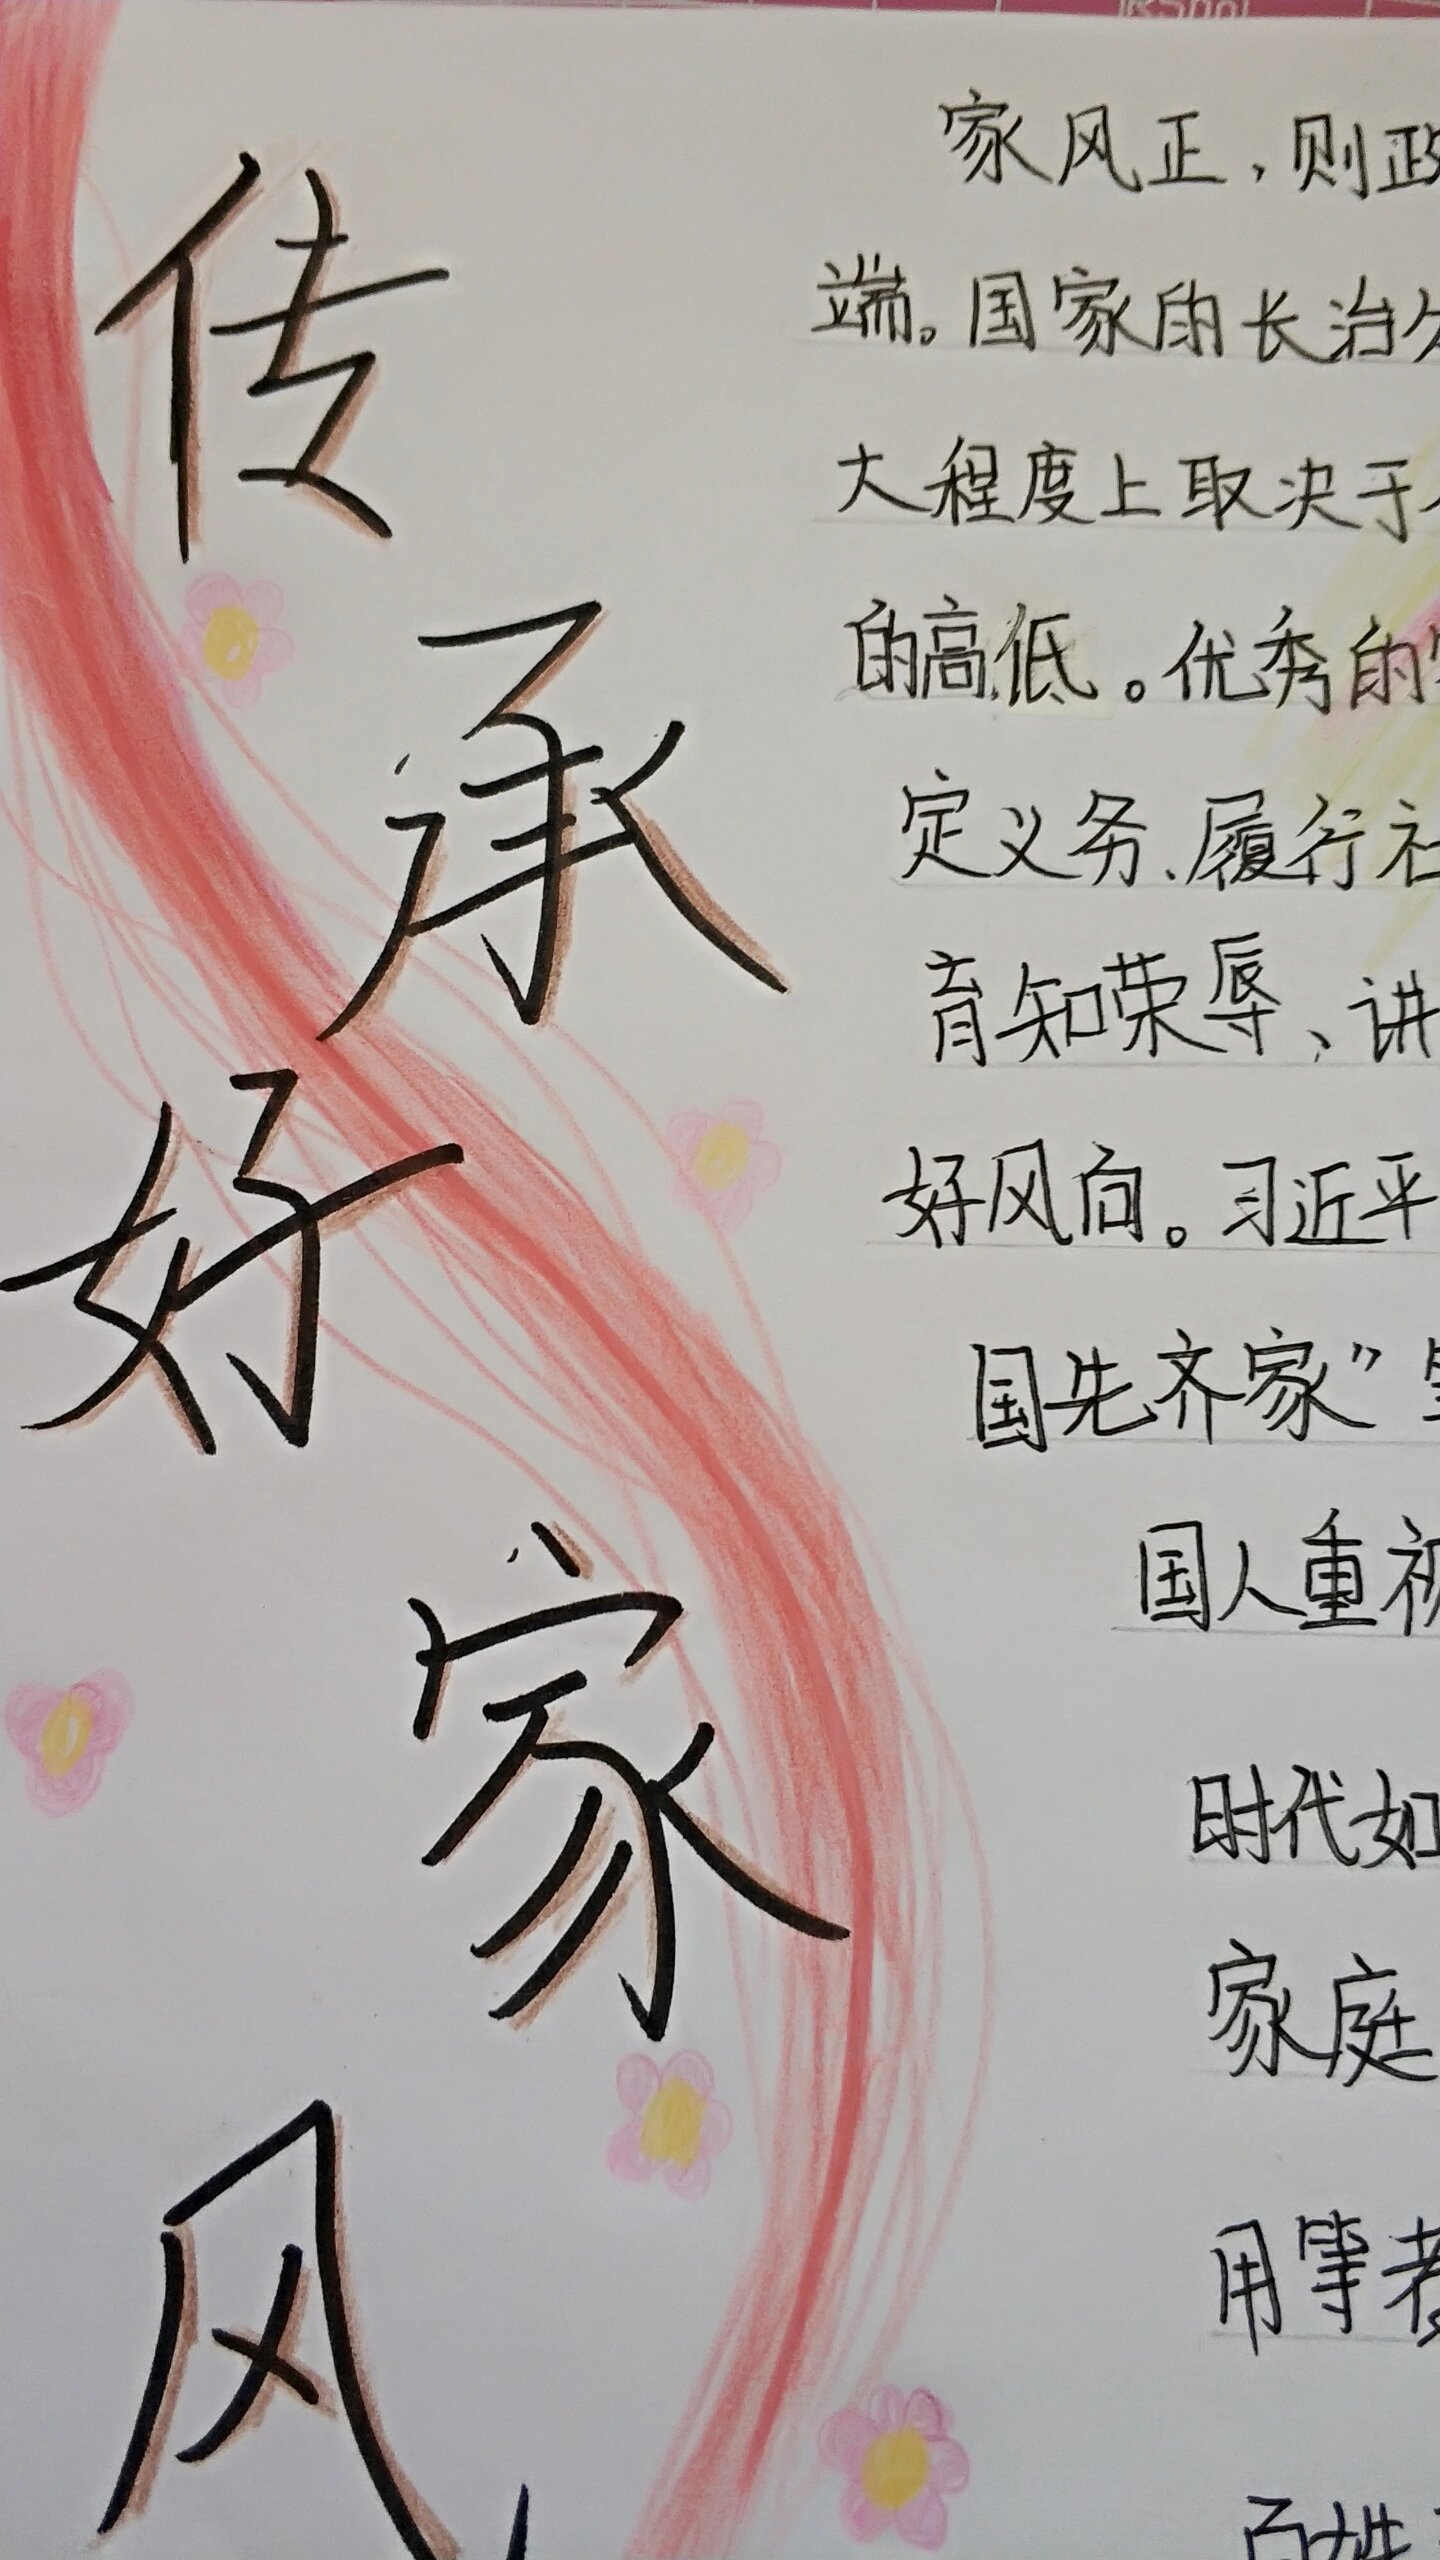 传承好家风
家风正，则政
端。国家的长治久
大程度上取决于
的高低。优秀的家
定义务、履行社
育知荣辱、讲
好风向。习近平
国先齐家”
国人重视
时代如
家庭
用等
百姓